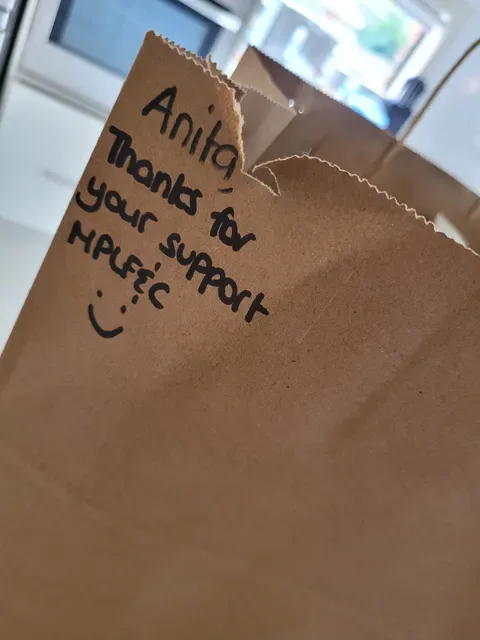 Anita,
Thanks for
your support
MPLF&C
:)